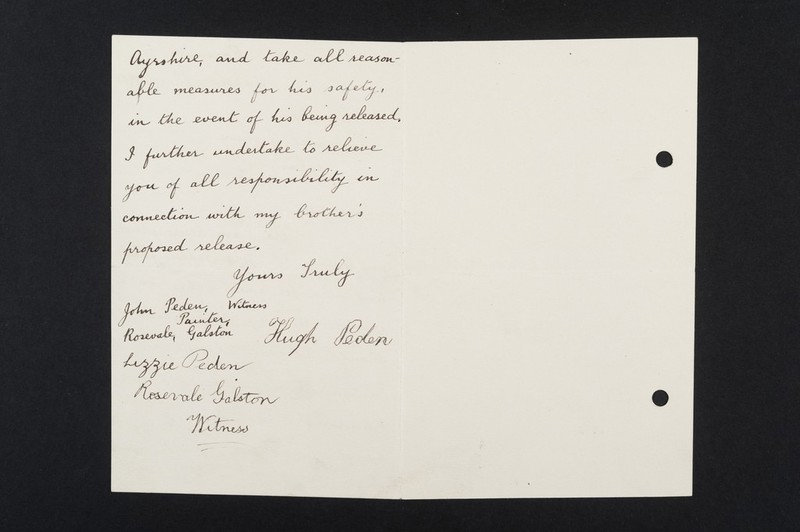 Ayrshire, and take all reason-
able measures for his safety,
in the event of his being released.
I further undertake to relieve
you of all responsibility in
connection with my brother's
proposed release.
Yours Truly
John Peden, Witness
Painter,
Rosevale, Galston
Hugh Peden
Lizzie Peden
Rosevale Galston
Witness